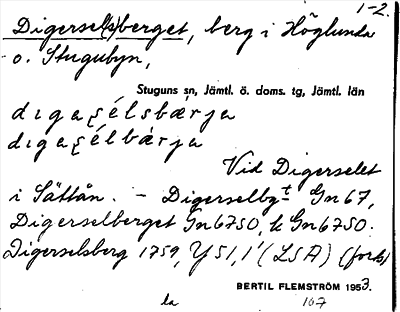 1-2.
Digersel(s)berget, berg i Höglunda
o. Stugubyn,
Stuguns sn, Jämtl. ö. doms. tg, Jämtl. län
dıgaʂélsbærja
dıgaʂélbærja
Vid Digerselet
i Sättån. - Digerselbgt Gn 67,
Digerselberget Gn 6750, k Gn 6750.
Digerselsberg 1759, Y 51, 1' (LSA) (forts)
BERTIL FLEMSTRÖM 1953.
la 167